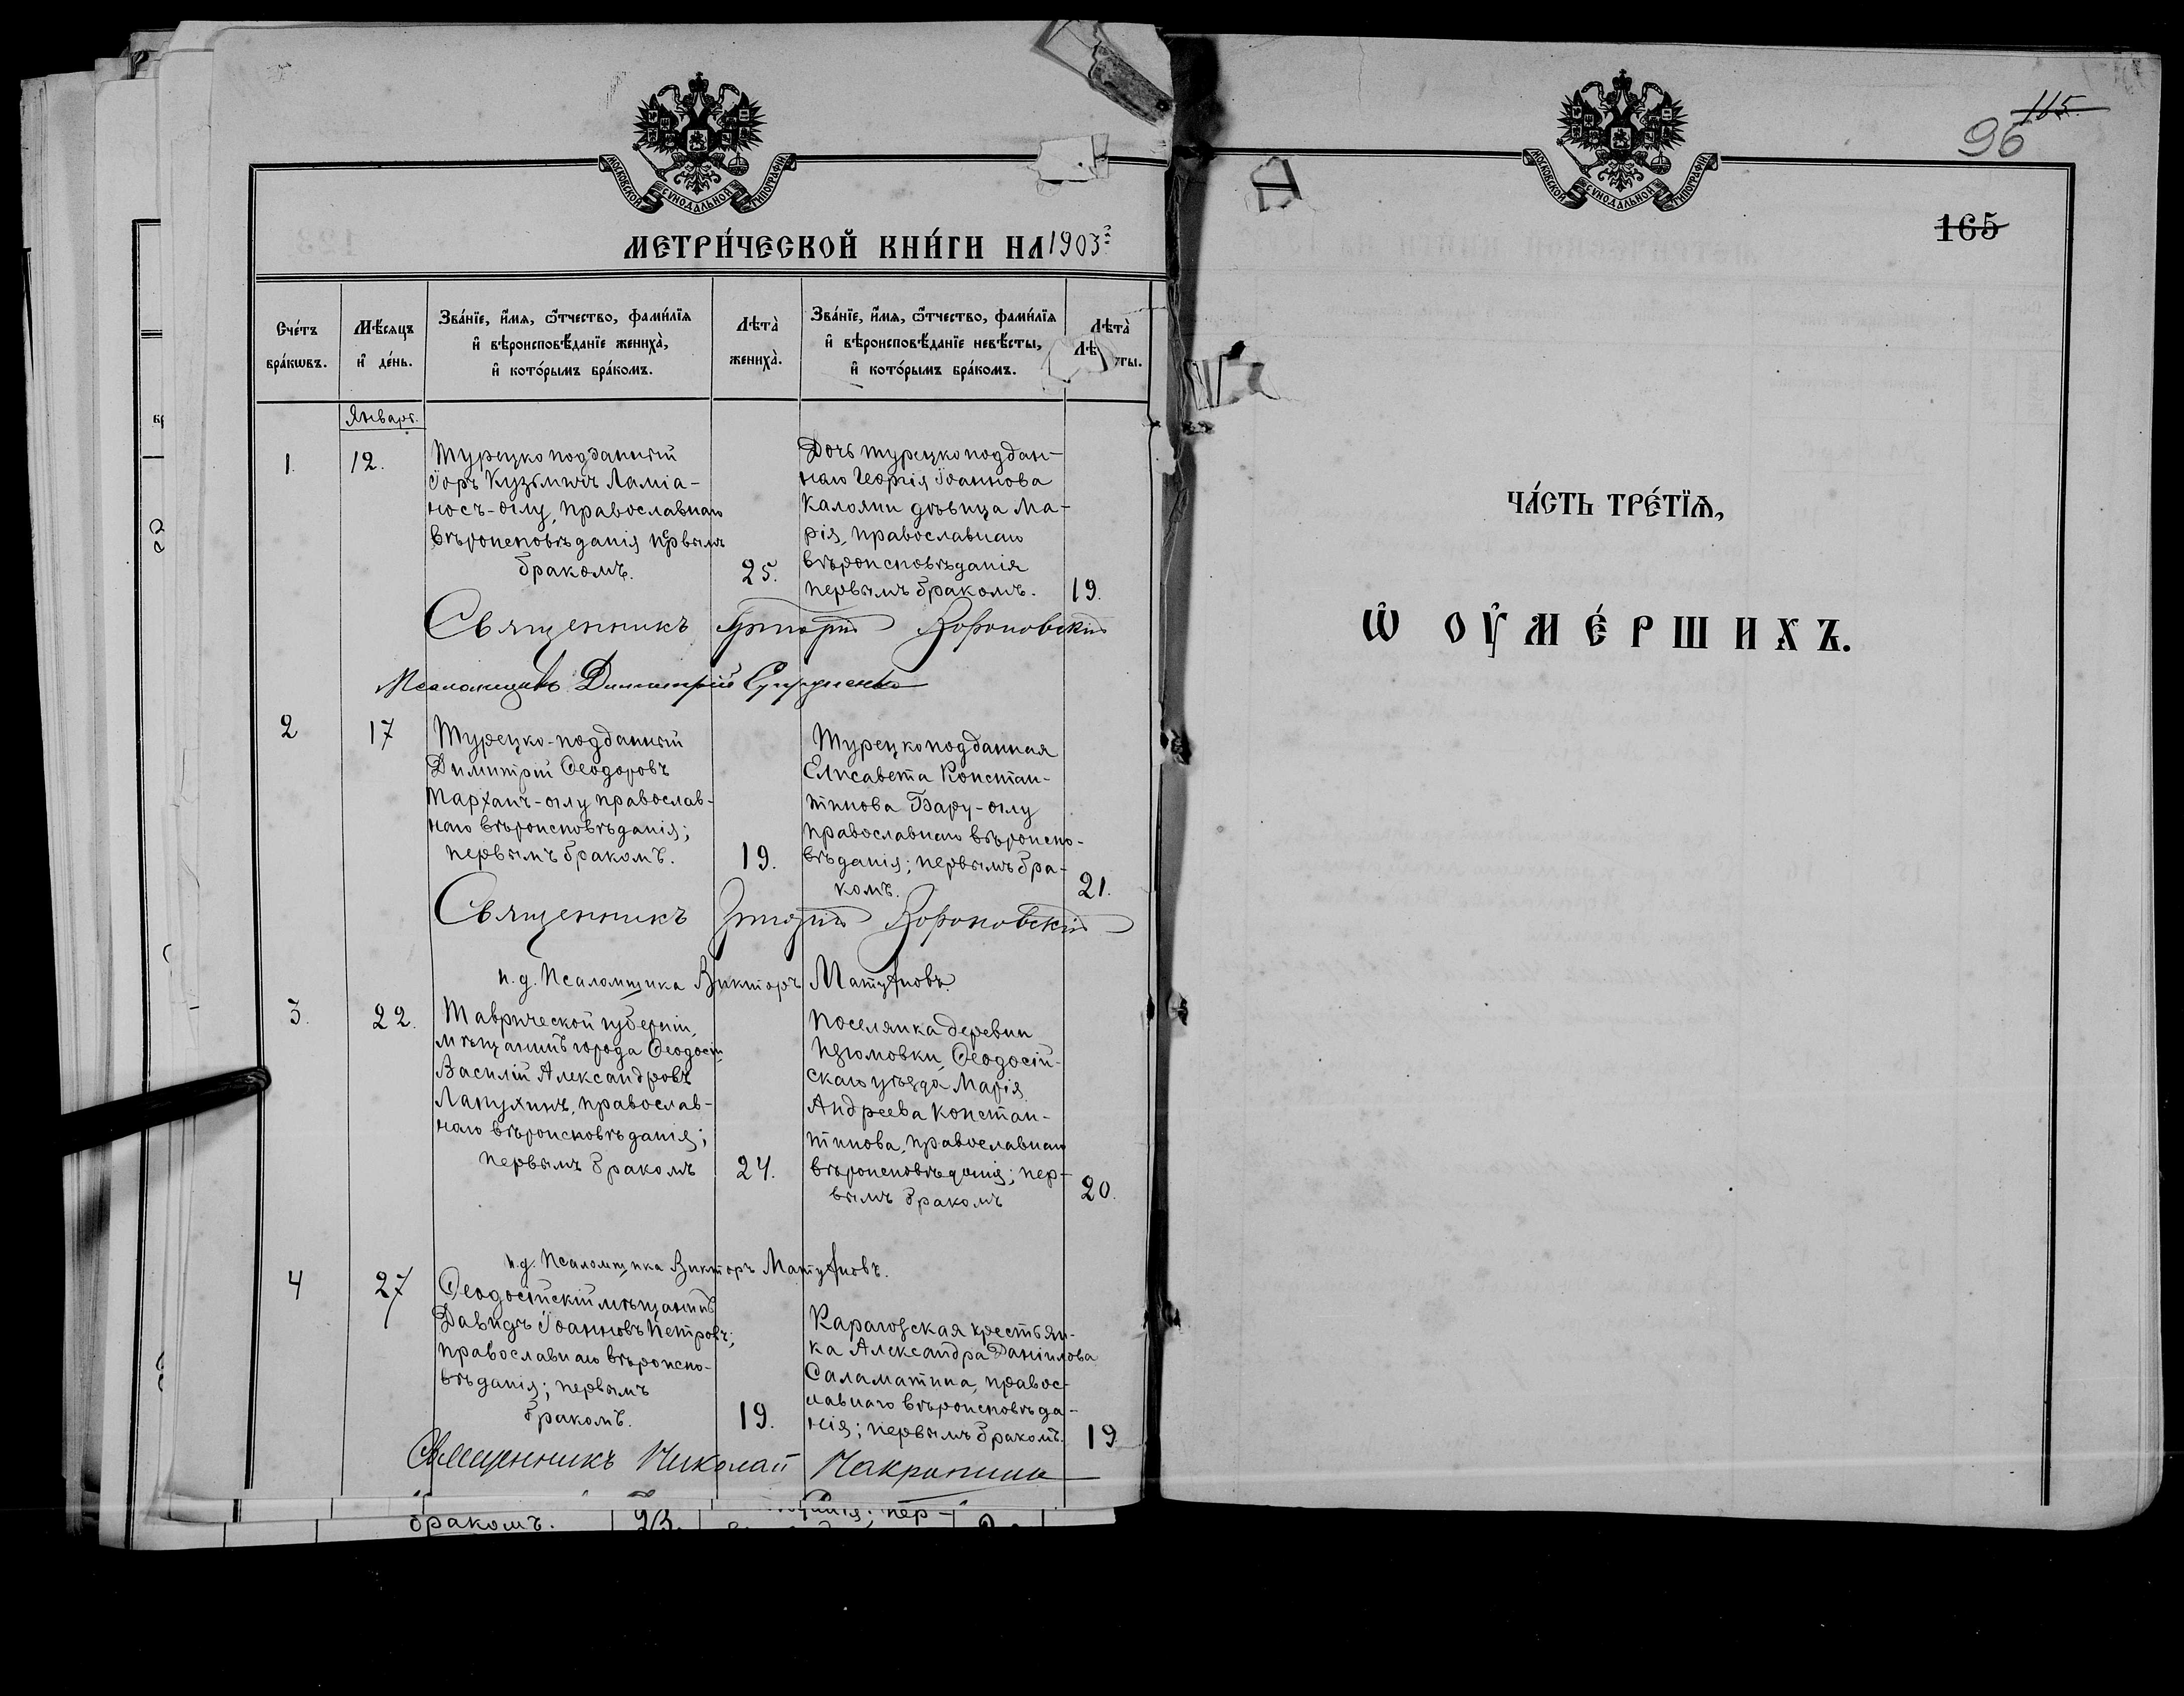 МОСКОВСКОЙ СѴНОДАЛЬНОЙ ТИПОГРАФІИ
МЕТРИ́ЧЕСКОЙ КНИ́ГИ НА 1903 г.
Сче́тъ бра́кωвъ.
Мѣ́сяцъ и҆ де́нь.
Зва́нїе, и҆́мя, ѻ҆́тчество, фами́лїя
и҆ вѣроисповѣ́данїе жениха̀,
и҆ кото́рымъ бра́комъ.
Лѣта̀
жениха̀.
Зва́нїе, и҆́мя, ѻ҆́тчество, фами́лїя
и҆ вѣроисповѣ́данїе невѣ́сты,
и҆ кото́рымъ бра́комъ.
Лѣта̀
Январь.
1.
12.
Турецко подданный
Їоръ Кузьмичъ Ламіа-
носъ-оглу, православнаго
вѣроисповѣданія первымъ
бракомъ.
25.
Дочь турецкоподдан-
наго Георгія Іоаннова
Калояни дѣвица Ма-
рія, православнаго
вѣроисповѣданія
первымъ бракомъ.
19.
Священникъ Григорій Вороновскій
Псаломщикъ Димитрій
2
17
Турецко-подданный
Димитрій Ѳеодоровъ
Тарханъ-оглу православ-
наго вѣроисповѣданія;
первымъ бракомъ.
19.
Турецкоподданная
Елисавета Констан-
тинова Бару-оглу
православнаго вѣроиспо-
вѣданія; первымъ бра-
комъ.
21.
Священникъ Григорій Вороновскій
и.д. Псаломщика Викторъ
3.
22.
Таврической губерніи,
мѣщанинъ города Ѳеодосіи
Василій Александровъ
Лапухинъ, православ-
наго вѣроисповѣданія;
первымъ бракомъ
24.
Поселянка деревни
Изюмовки, Ѳеодосій-
скаго уѣзда Марія
Андреева Констан-
тинова, православнаго
вѣроисповѣданія; пер-
вымъ бракомъ
20.
и.д. Псаломщика Викторъ
4
27
Ѳеодосійскій мѣщанинъ
Давидъ Іоанновъ Петровъ;
православнаго вѣроиспо-
вѣданія; первымъ
бракомъ.
19.
Карагозская крестьян-
ка Александра Даніилова
Саламатина, правос-
лавнаго вѣроисповѣда-
нія; первымъ бракомъ.
19
Священникъ Николай
бракомъ.
23.
пер-
МОСКОВСКОЙ СѴНОДАЛЬНОЙ ТИПОГРАФІИ
115.
96
165
ЧА́СТЬ ТРЕ́ТЇѦ,
Ѡ҆ ОУ҆МЕ́РШИХЪ.